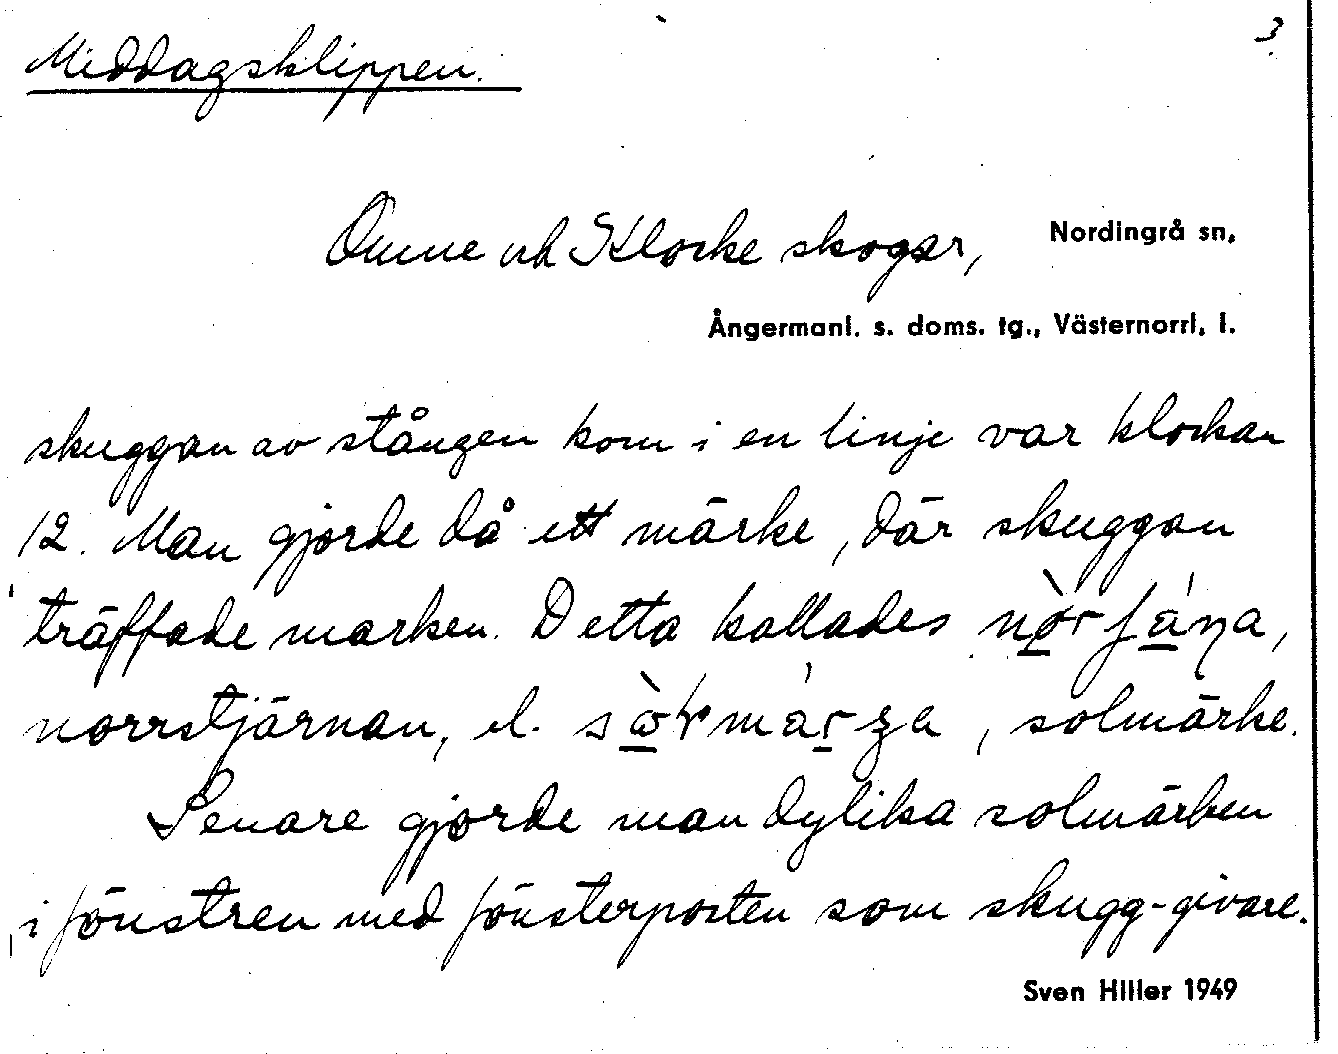 3
Middagsklippen.
Omne och Klocke skogar, Nordingrå sn,
Ångermanl. s. doms. tg., Västernorrl. l.
skuggan av stången kom i en linje var klockan
12. Man gjorde då ett märke, där skuggan
träffade marken. Detta kallades
norrstjärnan, el. , solmärke.
Senare gjorde man dylika solmärken
i fönstren med fönsterposten som skugg-givare.
Sven Hiller 1949